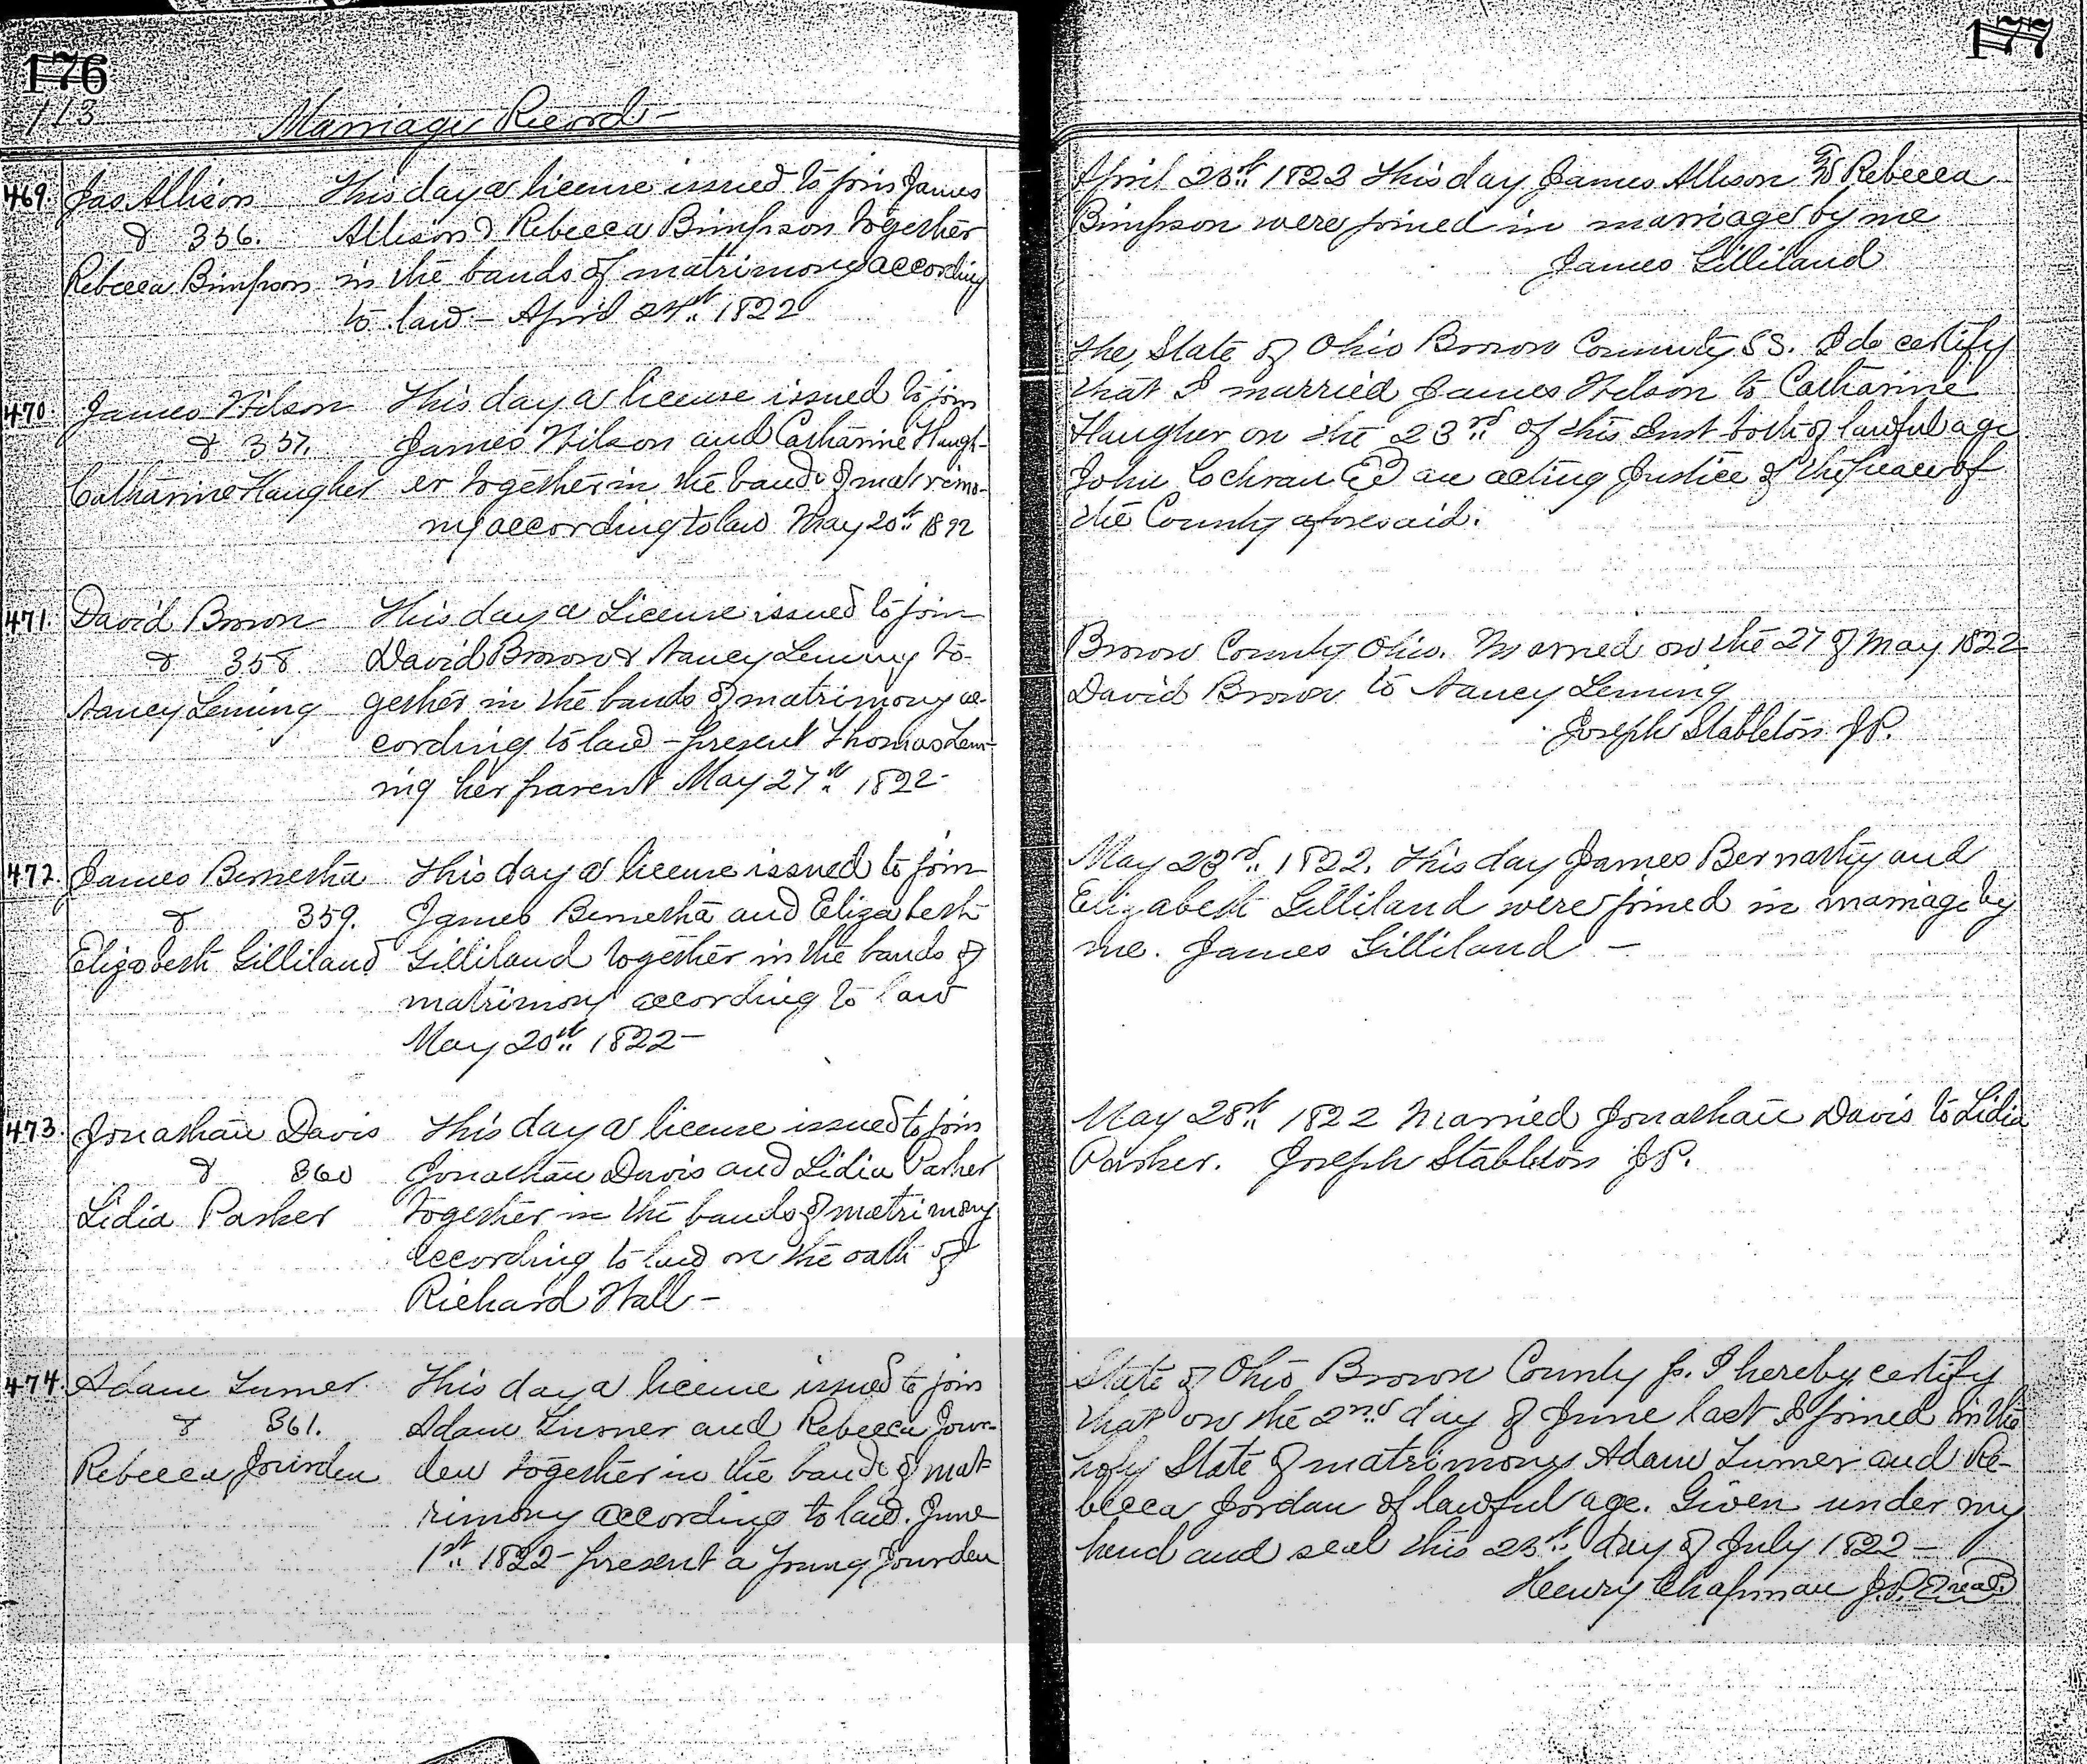 176
113
Marriage Record
469. Jas Allison
& 356.
Rebecca Bimpson
This day a license issued to join James
Allison & Rebecca Bimpson together
in the bands of matrimony according
to law - April 24th 1822
470. James Wilson
& 357.
Catharine Haugher
This day a license issued to join
James Wilson and Catharine Haugh-
er together in the bands of matrimo-
ny according to law May 20th 1822
471. David Brown
& 358
Nancy Leming
This day a License issued to join
David Brown & Nancy Leming to-
gether in the bands of matrimony ac-
cording to law - present Thomas Lem-
ing her parent May 27th 1822-
472. James Bernetha
& 359.
Elizabeth Gilliland
This day a license issued to join
James Bernetha and Elizabeth
Gilliland together in the bands of
matrimony according to law
May 20th 1822-
473. Jonathan Davis
& 360
Lidia Parker
This day a license issued to join
Jonathan Davis and Lidia Parker
together in the bands of matrimony
according to law on the oath of
Richard Hall-
474. Adam Turner
& 361.
Rebecca Jourden
This day a license issued to join
Adam Turner and Rebecca Jour-
den together in the bands of mat-
rimony according to law. June
1st 1822- present a young Jourden
177
April 25th 1822 This day James Allison to Rebecca
Bimpson were joined in marriage by me
James Gilliland
The State of Ohio Brown County SS. I do certify
that I married James Wilson to Catharine
Haugher on the 23rd of this Inst both of lawful age
John Cochran an acting Justice of the peace of
the County aforesaid.
Brown County Ohio. Married on the 27 of May 1822
David Brown to Nancy Leming
Joseph Stableton J.P.
May 23rd 1822. This day James Bernathy and
Elizabeth Gilliland were joined in marriage by
me. James Gilliland -
May 28th 1822 Married Jonathan Davis to Lidia
Parker. Joseph Stableton J.P.
State of Ohio Brown County ss. I hereby certify
that on the 2nd day of June last I joined in the
holy State of matrimony Adam Turner and Re-
becca Jordan of lawful age. Given under my
hand and seal this 25th day of July 1822-
Henry Chapman J.P. Seal